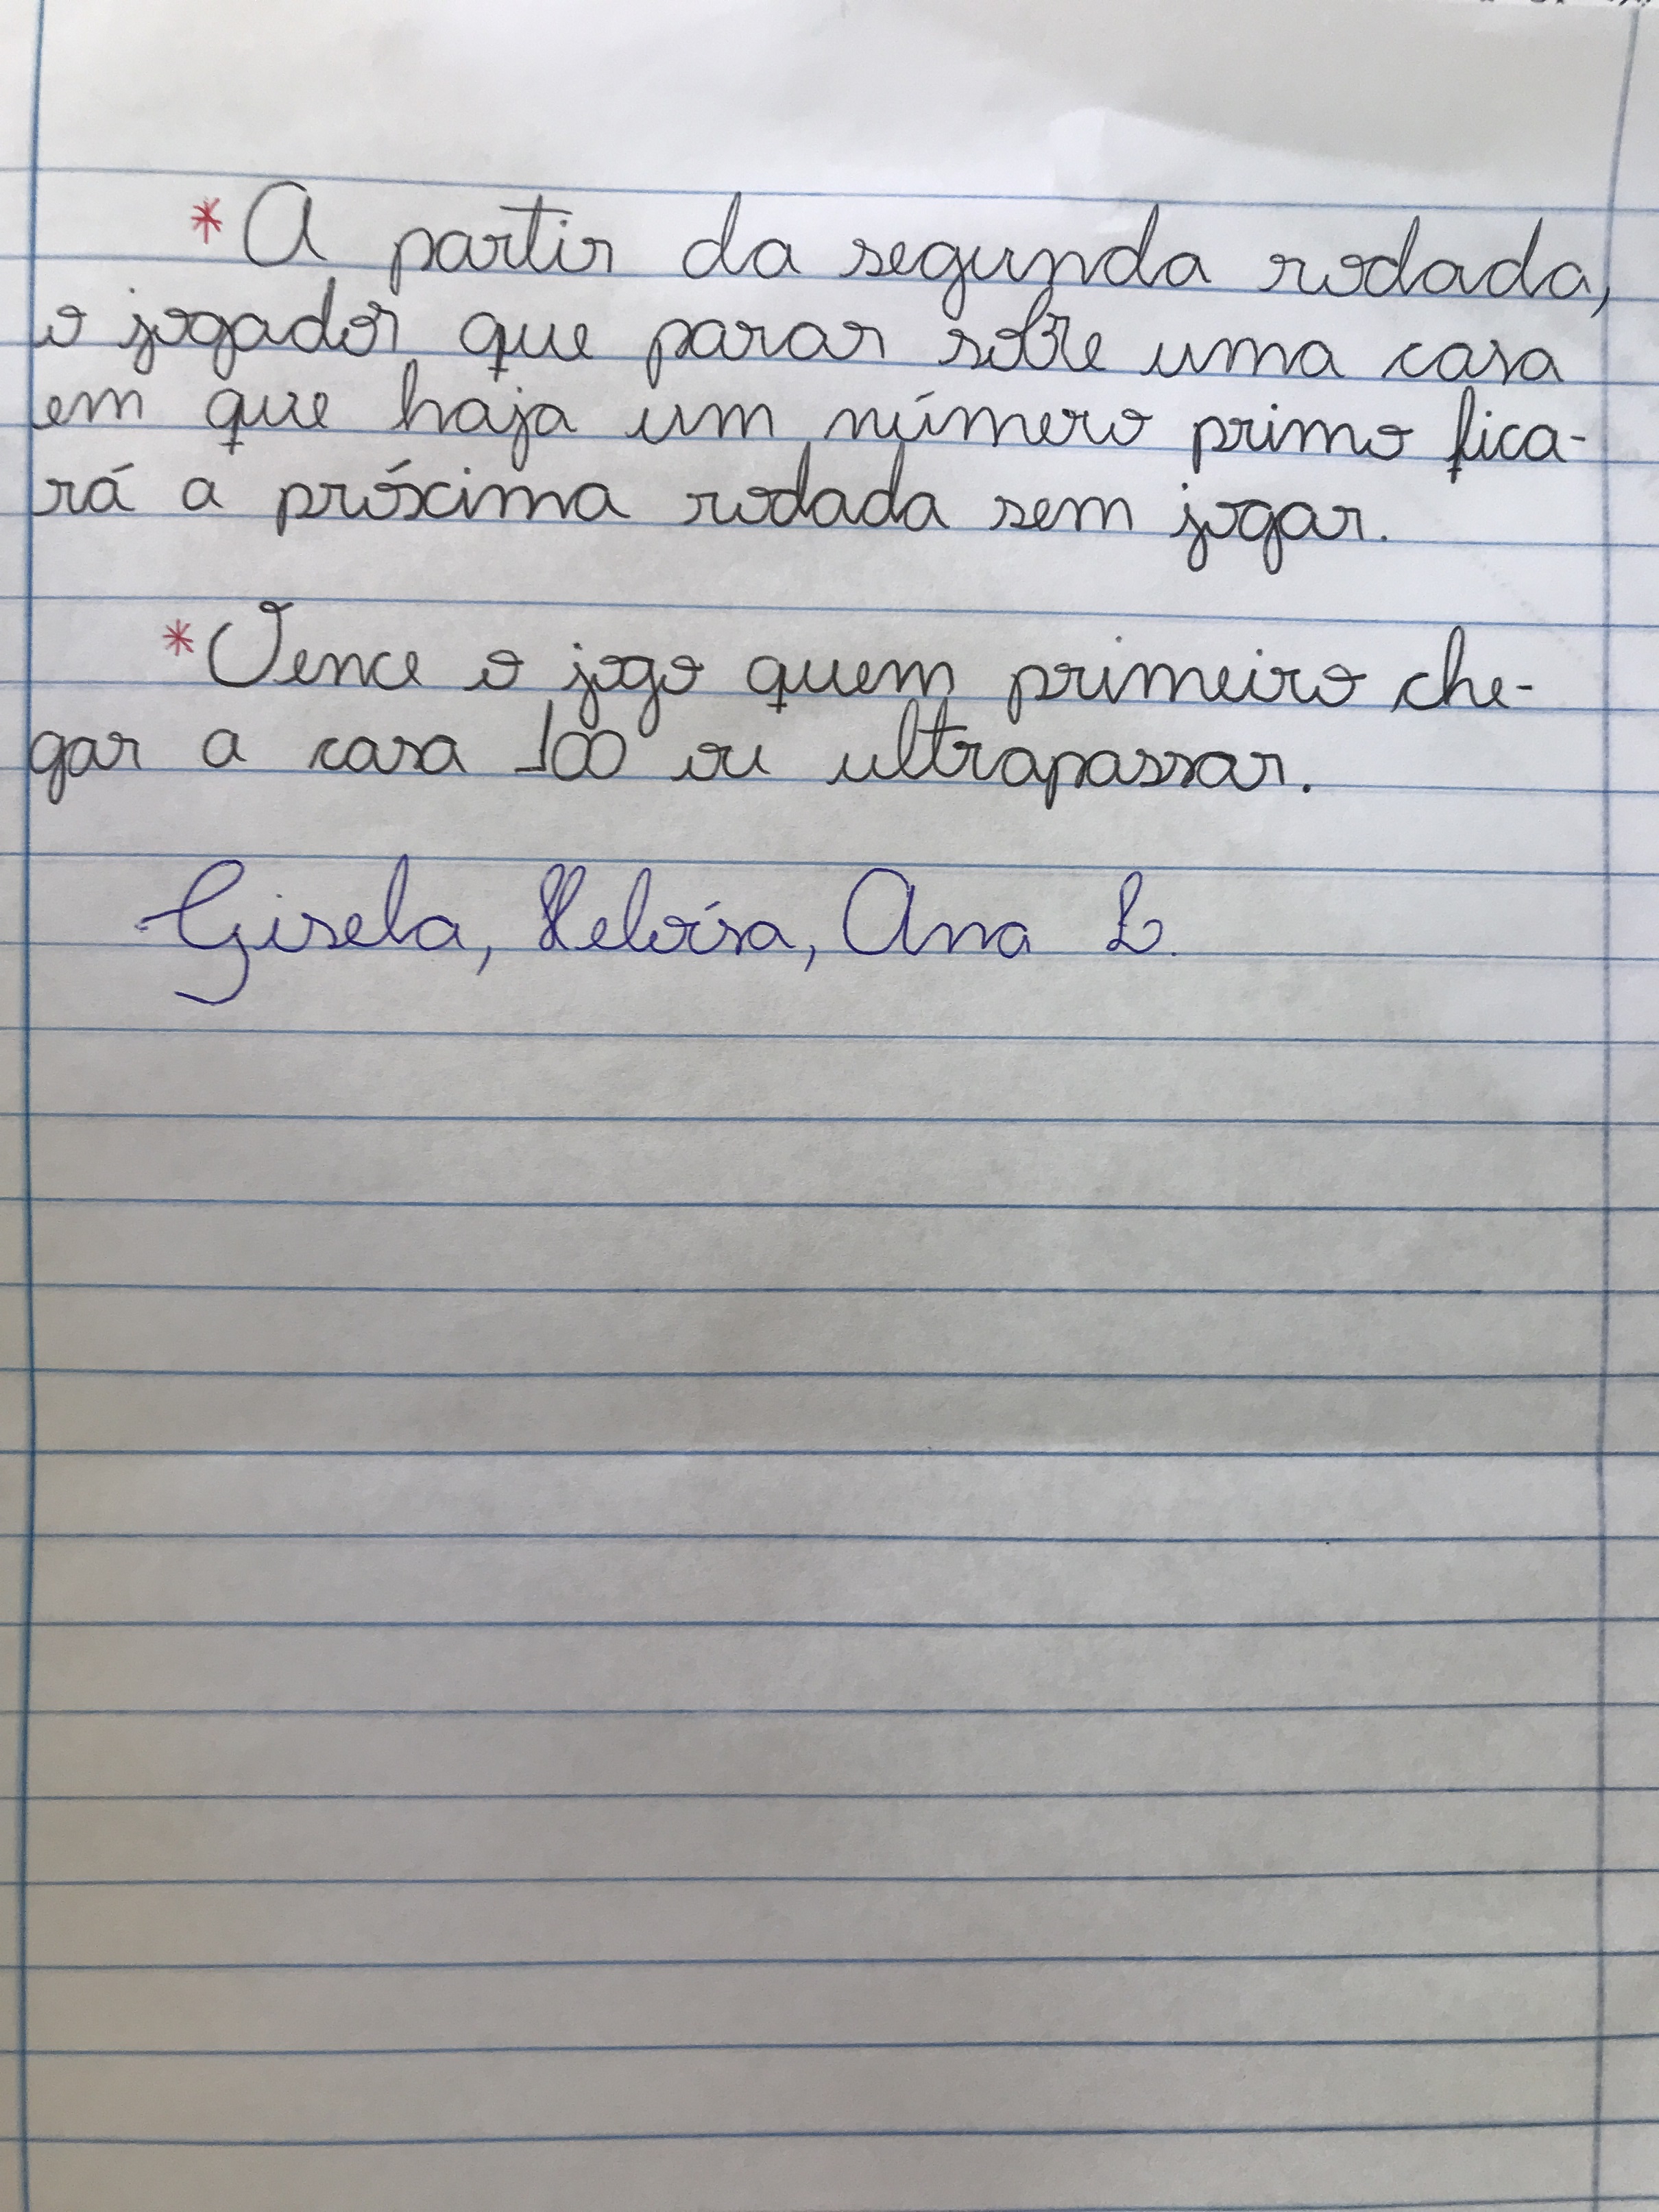 *A partir da segunda rodada,
o jogador que parar sobre uma casa
em que haja um número primo fica-
rá a próxima rodada sem jogar.
*Vence o jogo quem primeiro che-
gar a casa 100 ou ultrapassar.
Gisela, Heloísa, Ana L.